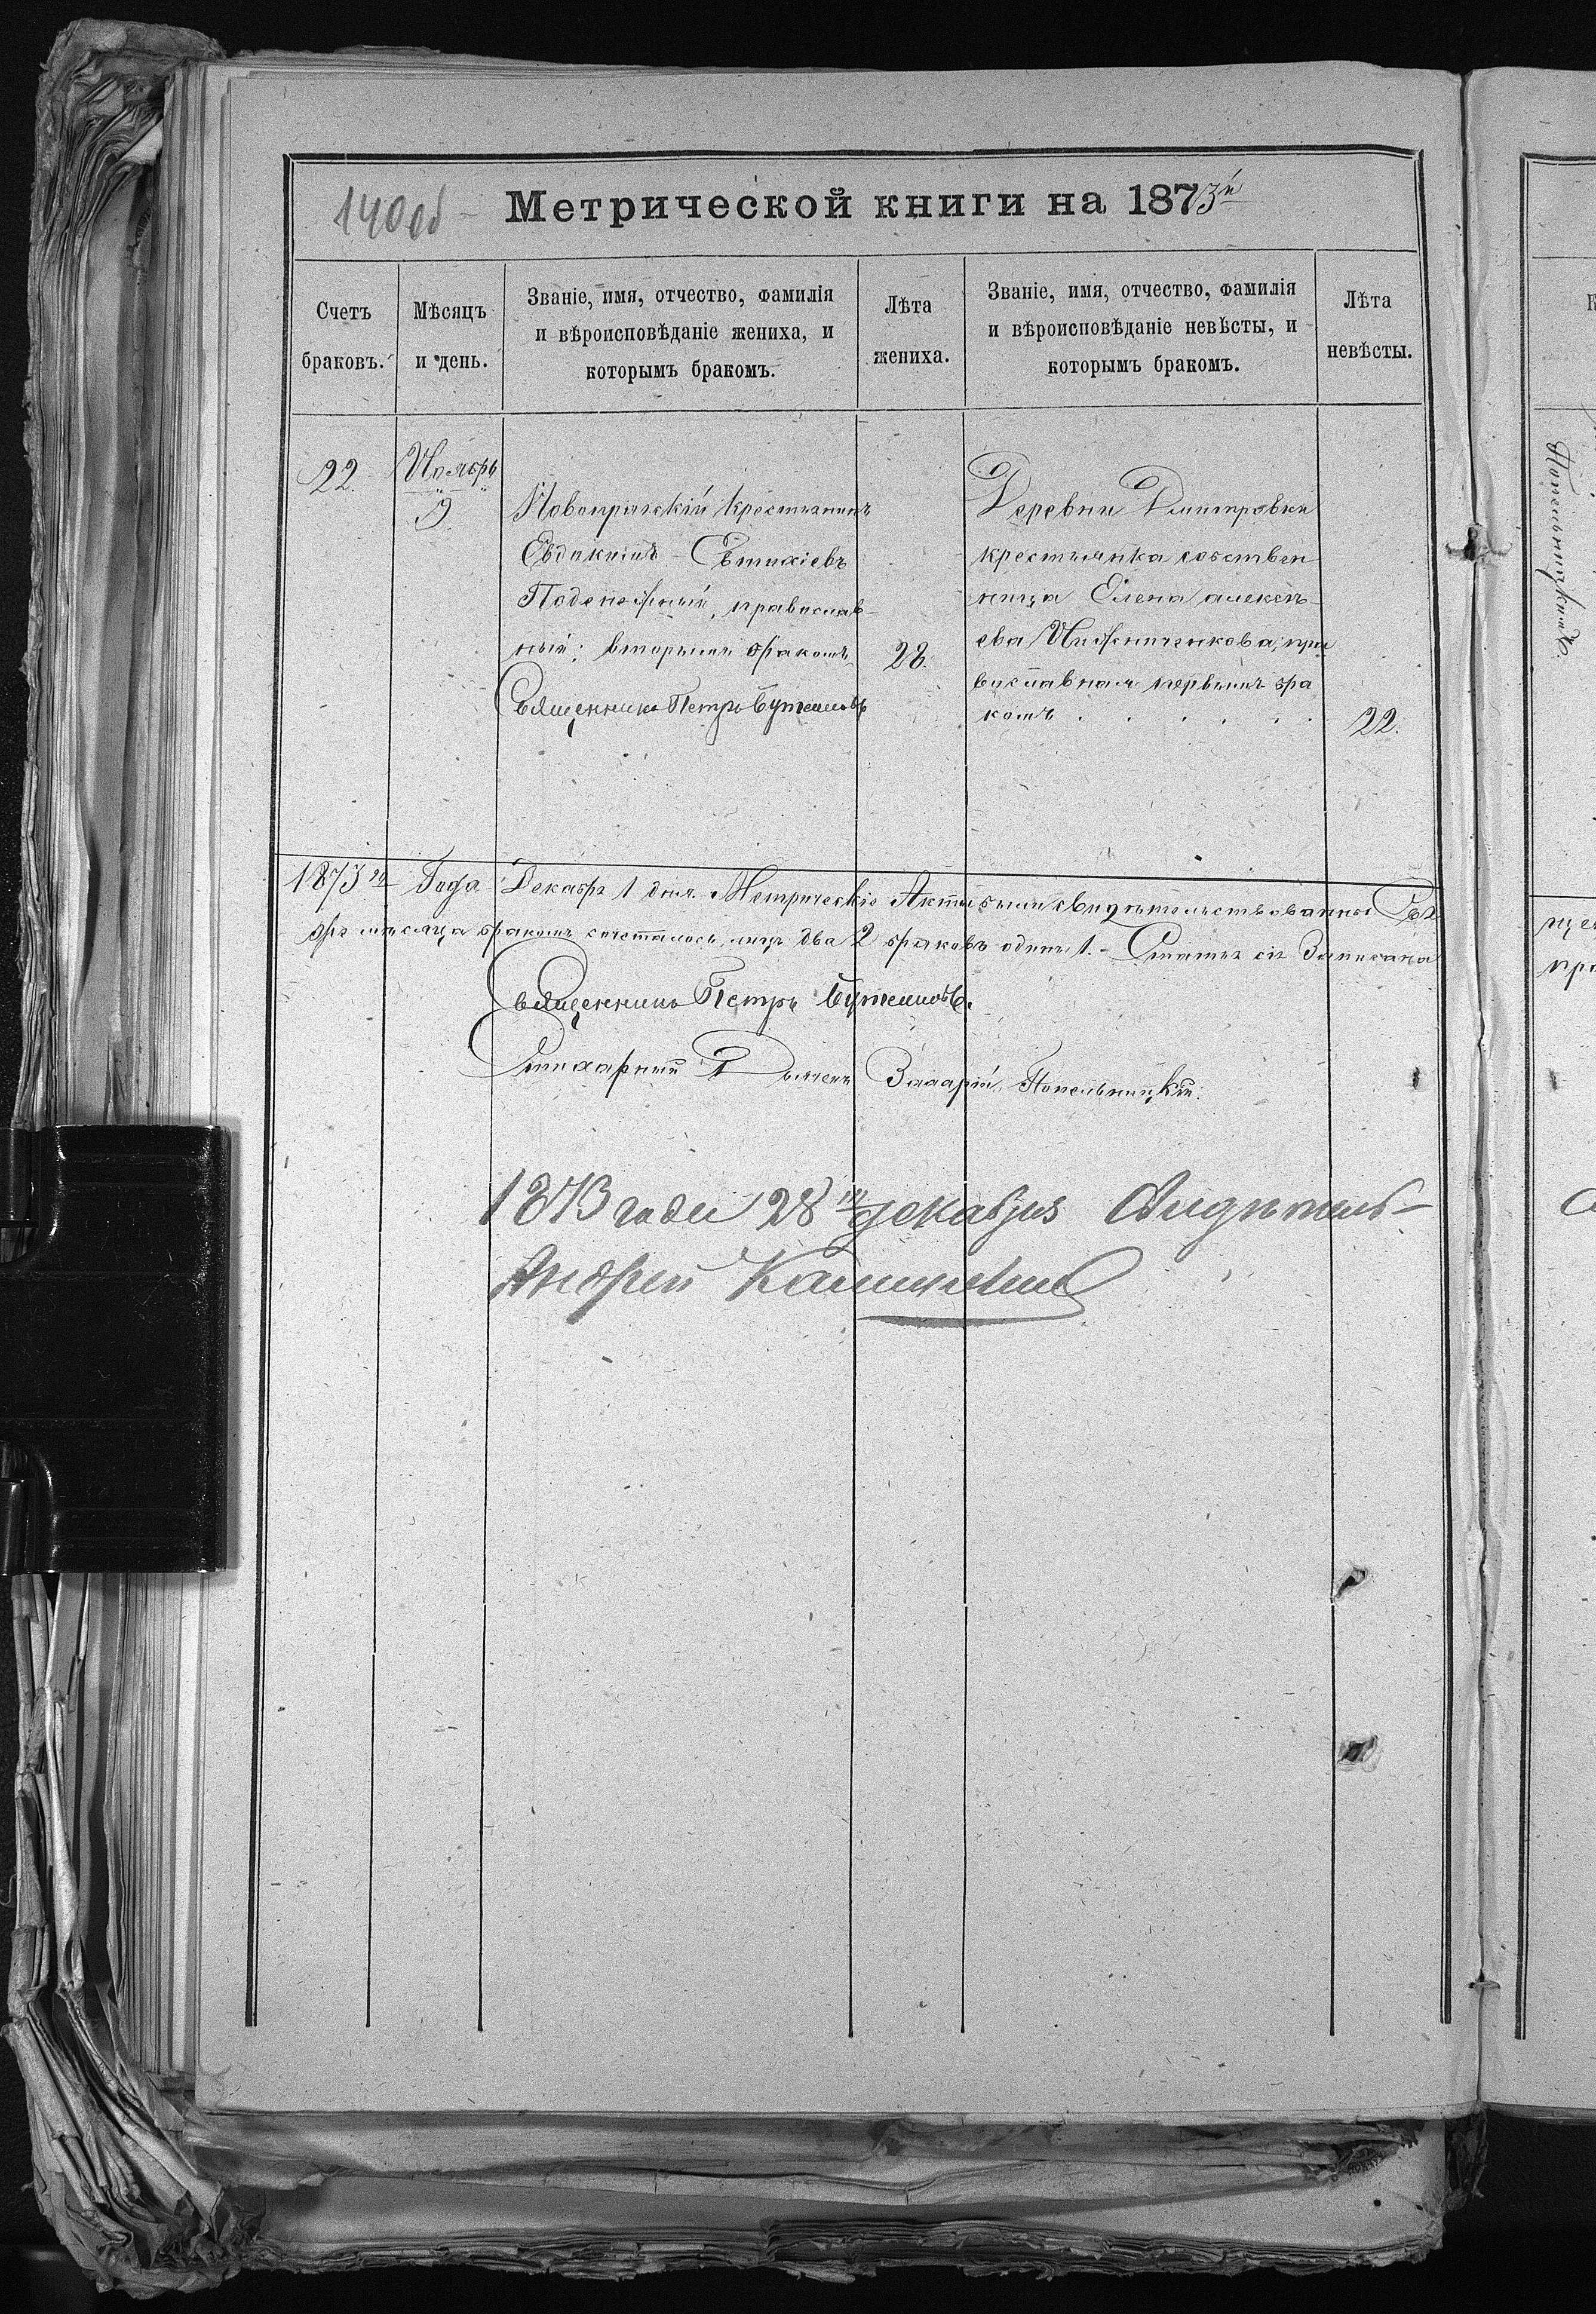 140об
Метрической книги на 1873й
Счетъ браковъ.
Мѣсяцъ и день.
Званіе, имя, отчество, фамилія
и вѣроисповѣданіе жениха, и
которымъ бракомъ.
Лѣта жениха.
Званіе, имя, отчество, фамилія
и вѣроисповѣданіе невѣсты, и
которымъ бракомъ.
Лѣта невѣсты.
22.
Ноябрь
9
Новопражскій крестьянинъ
Евдокимъ Евтихіевъ
православ-
ный; вторымъ бракомъ
28.
Священникъ Петръ
Деревни Дмитровки
крестьянка собствен
ница Елена Алексѣ-
ева пра
вославная первымъ бра
комъ
22.
1873го Года Декабря 1 дня. Метрическіе Акты сіи свидѣтельствованны. Ноя
бря мѣсяца бракомъ сочеталось лицъ два 2 браковъ одинъ 1. Статья сія Записана
Священникъ Петръ
Стихарный Дьячекъ Захарій Попельницкій.
1873 года 28го декабря
Андрей
Попельницкимъ.